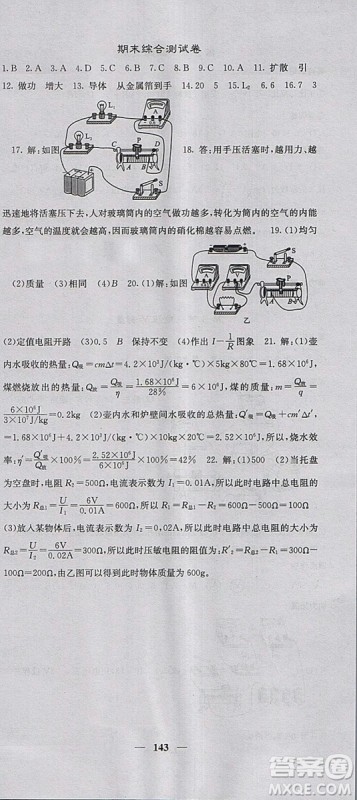 期末综合测试卷
1.B 2.A 3.A 4.D 5.C 6.D 7.B 8.C 9.B 10.C 11.扩散 引
12.做功 增大 13.导体 从金属箔到手 14.20 5 15.2 6 16.7 3
L₁
L₂
17.解：如图
C P D
A B
18.答：用手压活塞时，越用力、越
迅速地将活塞压下去，人对玻璃筒内的空气做功越多，转化为筒内的空气的内能
越多，空气的温度就会越高，因而玻璃筒内的硝化棉越容易点燃。 19.(1)均匀
(2)质量 (3)相同 20.(1)如图
P
A B
乙
(2)定值电阻开路 (3)0.5 B 保持不变 (4)作出I-1/R图象 21.解：壶
内水吸收的热量：Q吸=cmΔt=4.2×10³J/(kg·℃)×5kg×80℃=1.68×10⁶J，
煤燃烧放出的热量，Q放=Q吸/η=1.68×10⁶J/28%=6×10⁶J，煤的质量：m=Q放/q=
6×10⁶J/3×10⁷J/kg=0.2kg (2)壶内水和炉壁间水总吸收的热量：Q′吸=Q吸+cm′Δt′，
=1.68×10⁶J+4.2×10³J/(kg·℃)×5kg×40℃=2.52×10⁶J，所以，烧水效
率：η′=Q′吸/Q放×100%=2.52×10⁶J/6×10⁶J×100%=42% 22.解：(1)500 (2)当托盘
为空盘时，电流表示数为I=0.01A，所以此时电路中总电阻的大小为
R总1=U/I=6V/0.01A=600Ω，所以此时压敏电阻的阻值为R′₁=600Ω-100Ω=500Ω
(3)放入某物体后，电流表示数为I=0.02A，所以此时电路中总电阻的大小为
R总2=U/I=6V/0.02A=300Ω，所以此时压敏电阻的阻值为R′₂=300Ω-100Ω=
200Ω，由乙图可以物体质量为600g。
143
答案圈
MXQE.COM